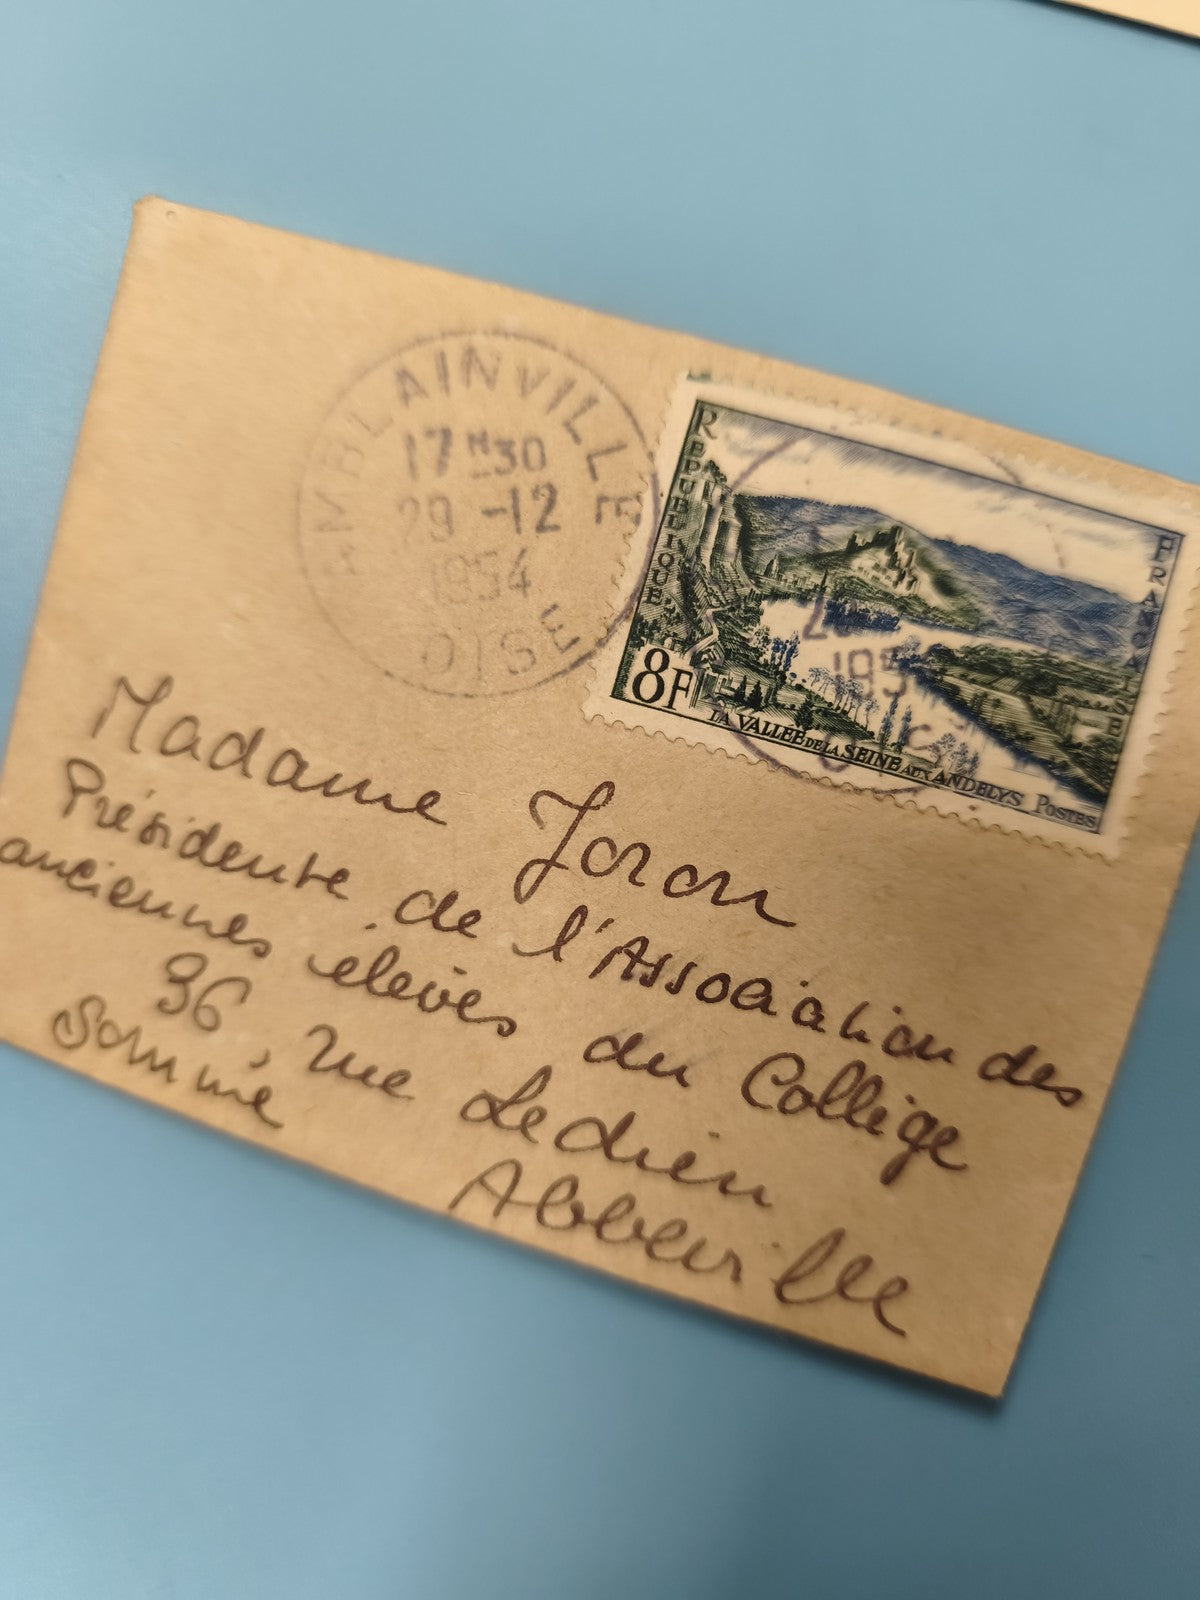 AMBLAINVILLE
17H30
29 -12
1954
OISE
REPUBLIQUE
FRANCAISE
8F
LA VALLÉE DE LA SEINE AUX ANDELYS POSTES
195
Madame Joron
Présidente de l'Association des
anciennes élèves du Collège
36, rue Ledien
Abbeville
Somme